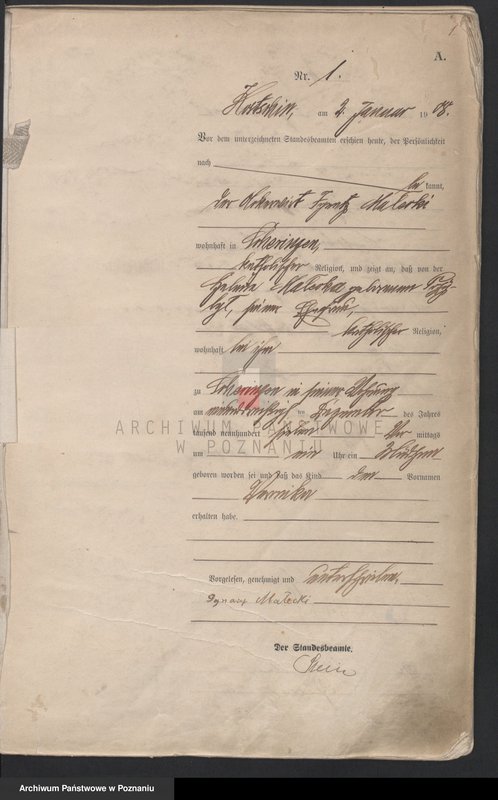 A.
Nr. 1.
Kostschin, am 2. Januar 1908.
Vor dem unterzeichneten Standesbeamten erschien heute, der Persönlichkeit
nach
be kannt,
der Ackerwirt Ignatz Malecki
wohnhaft in
katholischer Religion, und zeigt an, daß von der
Helena Malecka geborenen
seiner Ehefrau,
katholischer Religion,
wohnhaft bei ihm
zu in seiner Wohnung
am Dezember des Jahres
tausend neunhundert sieben Vor mittags
um Uhr ein Mädchen
geboren worden sei und daß das Kind den Vornamen
Veronika
erhalten habe.
Vorgelesen, genehmigt und unterschrieben.
Ignacy Małecki
Der Standesbeamte.
ARCHIWUM PAŃSTWOWE
W POZNANIU
Archiwum Państwowe w Poznaniu